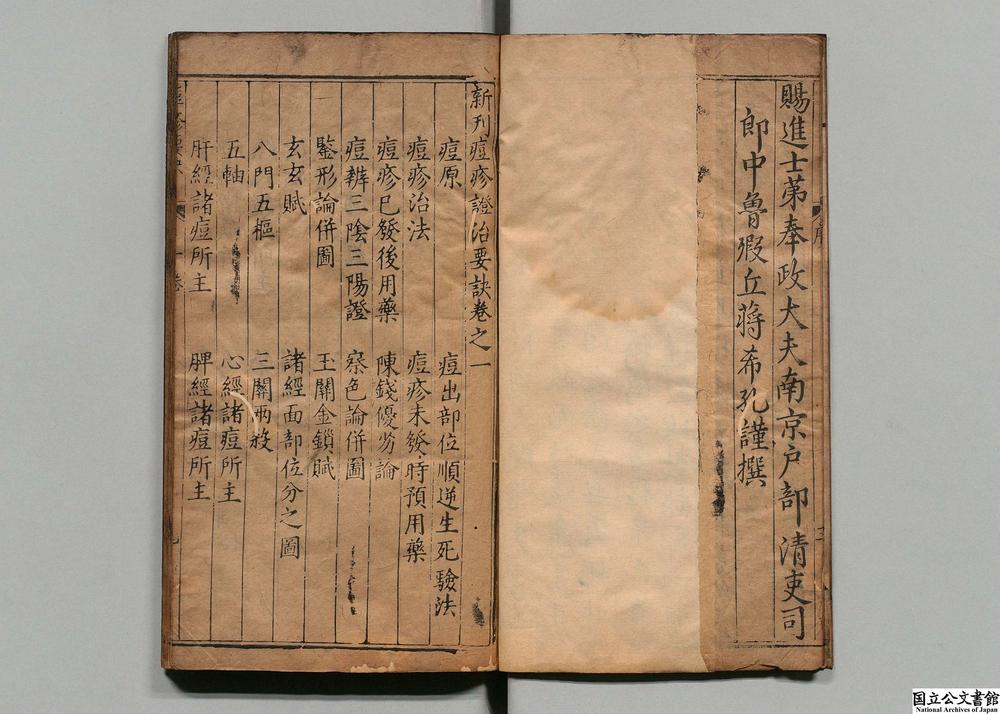 賜進士第奉政大夫南京戶部清吏司
郎中魯瑕丘蔣希孔謹撰
新刊痘疹證治要訣卷之一
痘原
痘出部位順逆生死驗法
痘疹治法
痘疹未發時預用藥
痘疹已發後用藥
陳錢優劣論
痘辨三陰三陽證
察色論併圖
鑒形論併圖
玉關金鎖賦
玄玄賦
諸經面部位分之圖
八門五樞
三關兩殺
五軸
心經諸痘所主
肝經諸痘所主
脾經諸痘所主
国立公文書館
National Archives of Japan